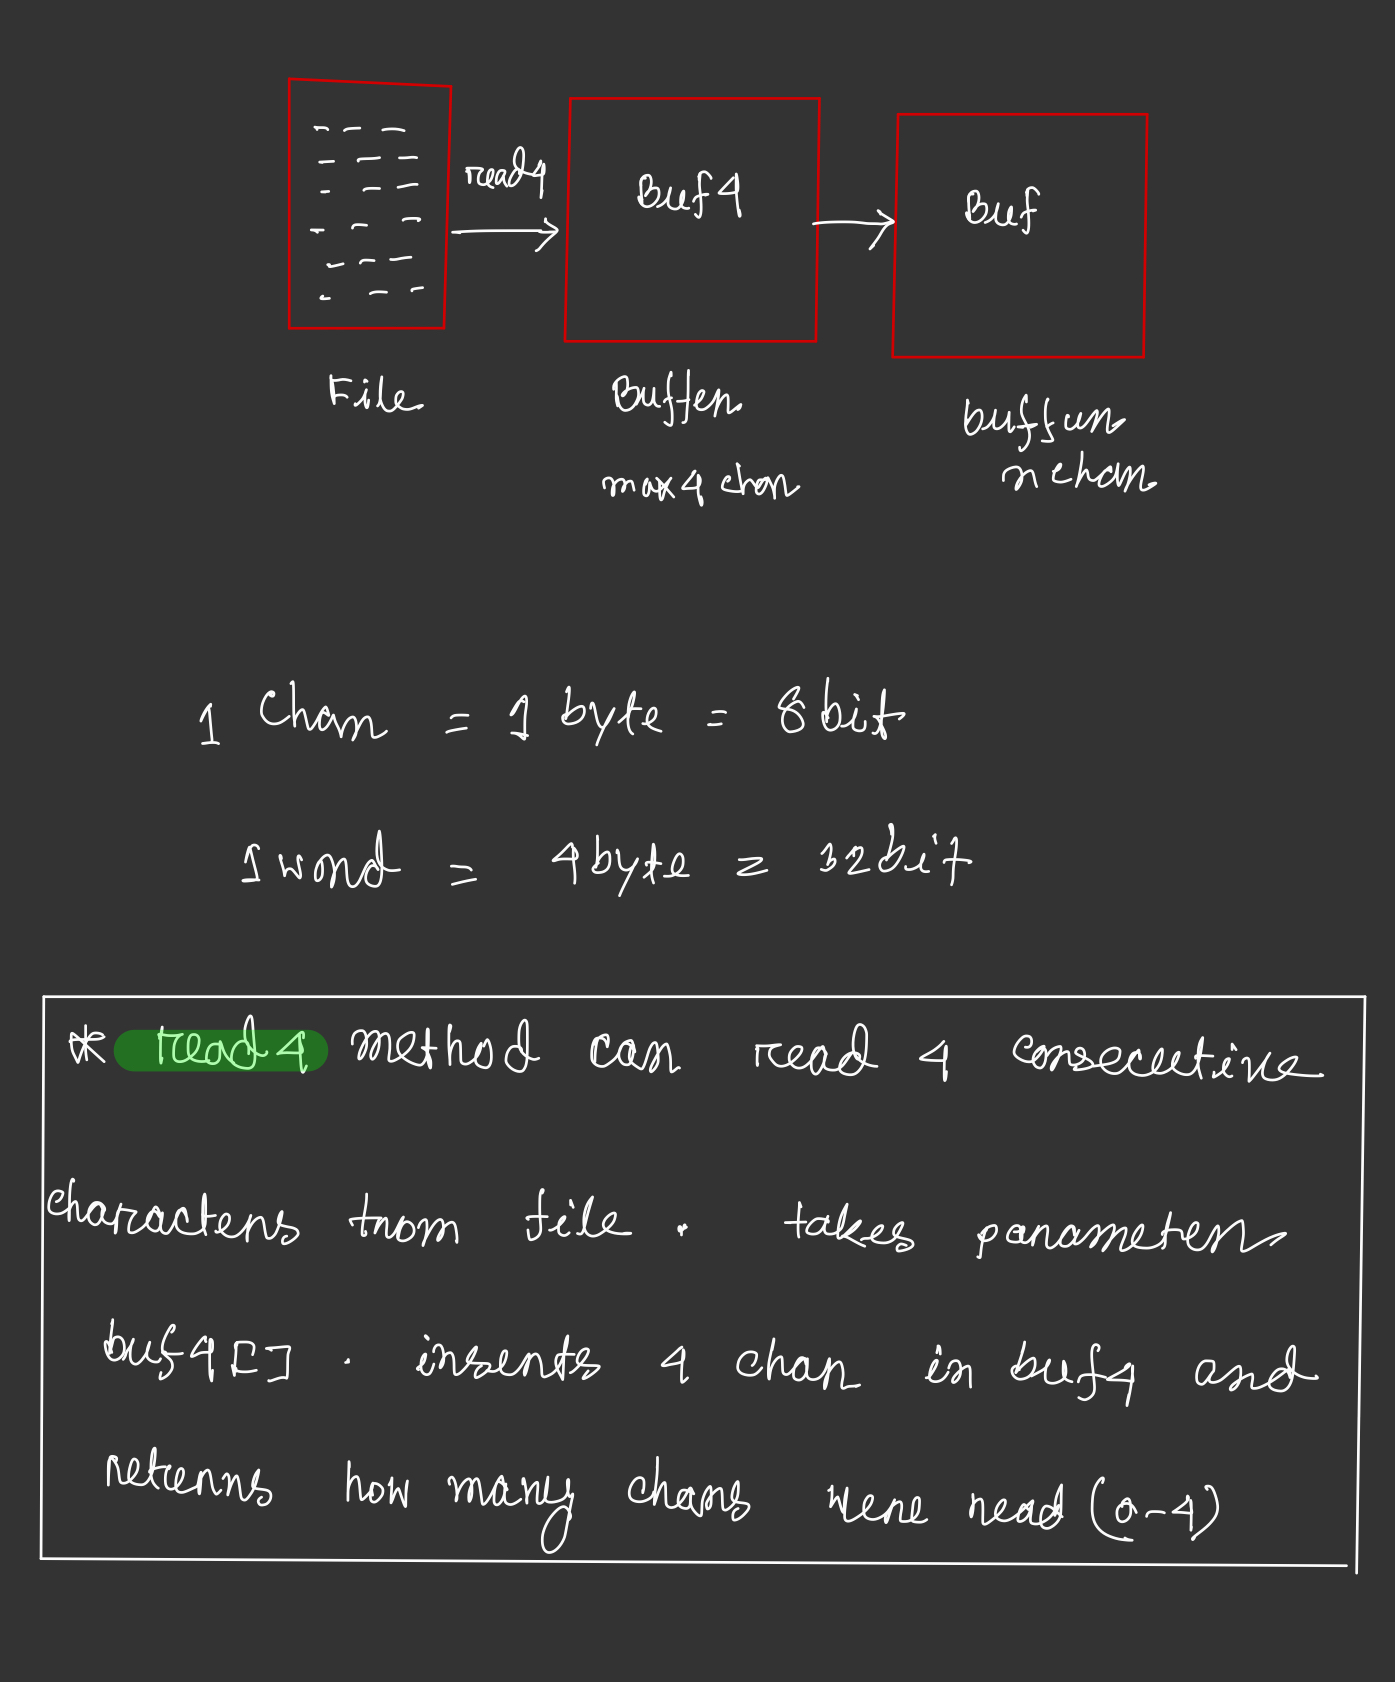 read4
Buf4
Buf
File
Buffer
max 4 char
buffer
n char
1 Char = 1 byte = 8 bit
1 word = 4 byte = 32 bit
* read4 method can read 4 consecutive
characters from file . takes parameter
buf4[] . inserts 4 char in buf4 and
returns how many chars were read (0-4)